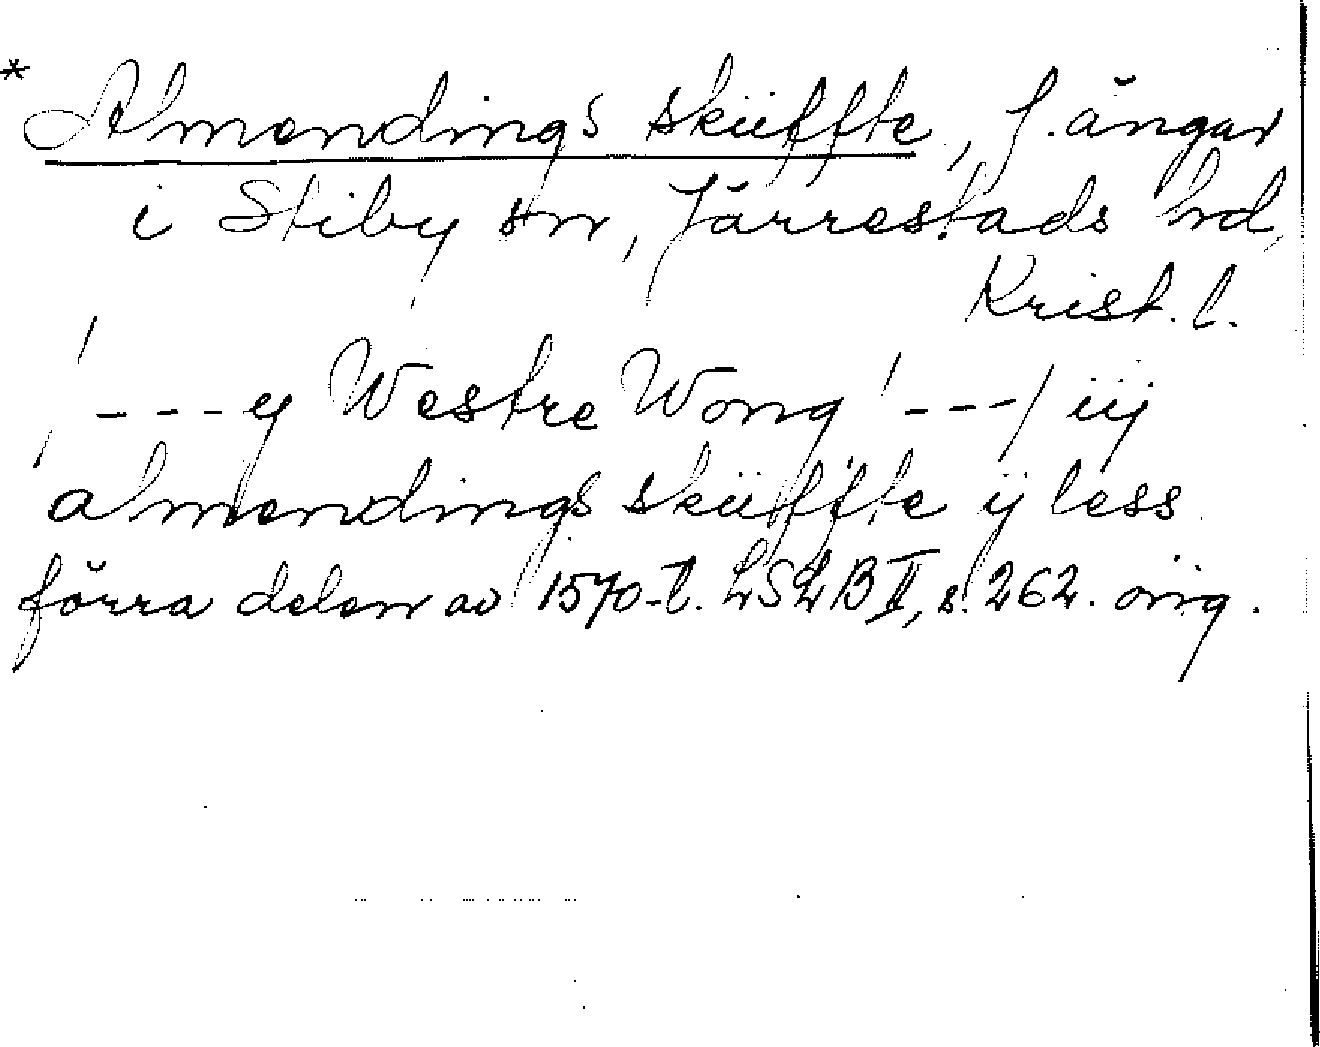 * Almendings sküffte, f. ängar
i Stiby sn, Järrestads hd,
Krist. l.
/---y Westre Wong /---/ iij
almendings sküffte ij less
förra delen av 1570-t. LSLB II, s. 262. orig.